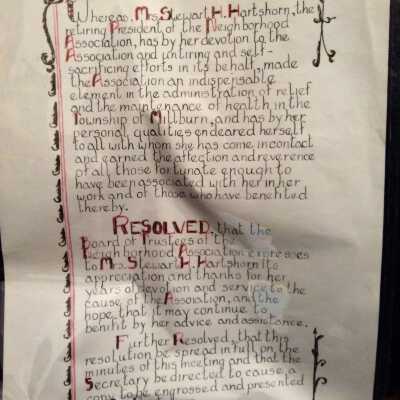 Whereas, Mrs. Stewart H. Hartshorn, the
retiring President of the Neighborhood
Association, has by her devotion to the
Association and untiring and self-
sacrificing efforts in its behalf, made
the Association an indispensable
element in the administration of relief
and the maintenance of health in the
Township of Millburn, and has by her
personal qualities endeared herself
to all with whom she has come in contact
and earned the affection and reverence
of all those fortunate enough to
have been associated with her in her
work and of those who have benefited
thereby.
RESOLVED, that the
Board of Trustees of the
Neighborhood Association expresses
to Mrs. Stewart H. Hartshorn its
appreciation and thanks for her
years of devotion and service to the
cause of the Association, and the
hope that it may continue to
benifit by her advice and assistance.
Further Resolved, that this
resolution be spread in full on the
minutes of this meeting and that the
Secretary be directed to cause a
copy to be engrossed and presented